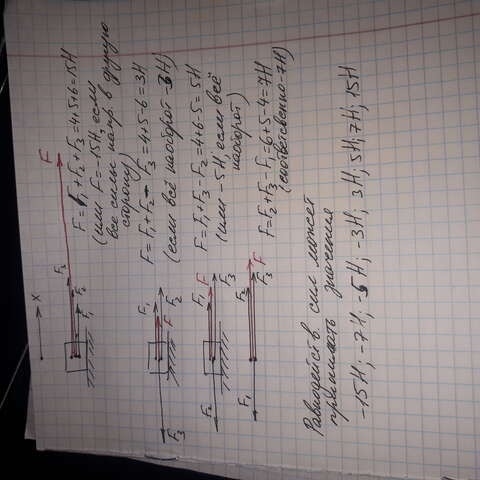 X
F₃ F
F₁ F₂
F = F₁ + F₂ + F₃ = 4+5+6 = 15Н
(или F = -15Н, если
все силы напр. в другую
сторону)
F₁
F₃ F F₂
F = F₁ + F₂ - F₃ = 4+5-6 = 3Н
(если всё наоборот -3Н)
F₂ F₁ F
F₃
F = F₁ + F₃ - F₂ = 4+6-5 = 5Н
(или -5Н, если всё
наоборот)
F₁ F₂
F₃ F
F = F₂ + F₃ - F₁ = 6+5-4 = 7Н
(соответсвенно -7Н)
Равнодейств. сил может
принимать значения
-15Н; -7Н; -5Н; -3Н; 3Н; 5Н; 7Н; 15Н